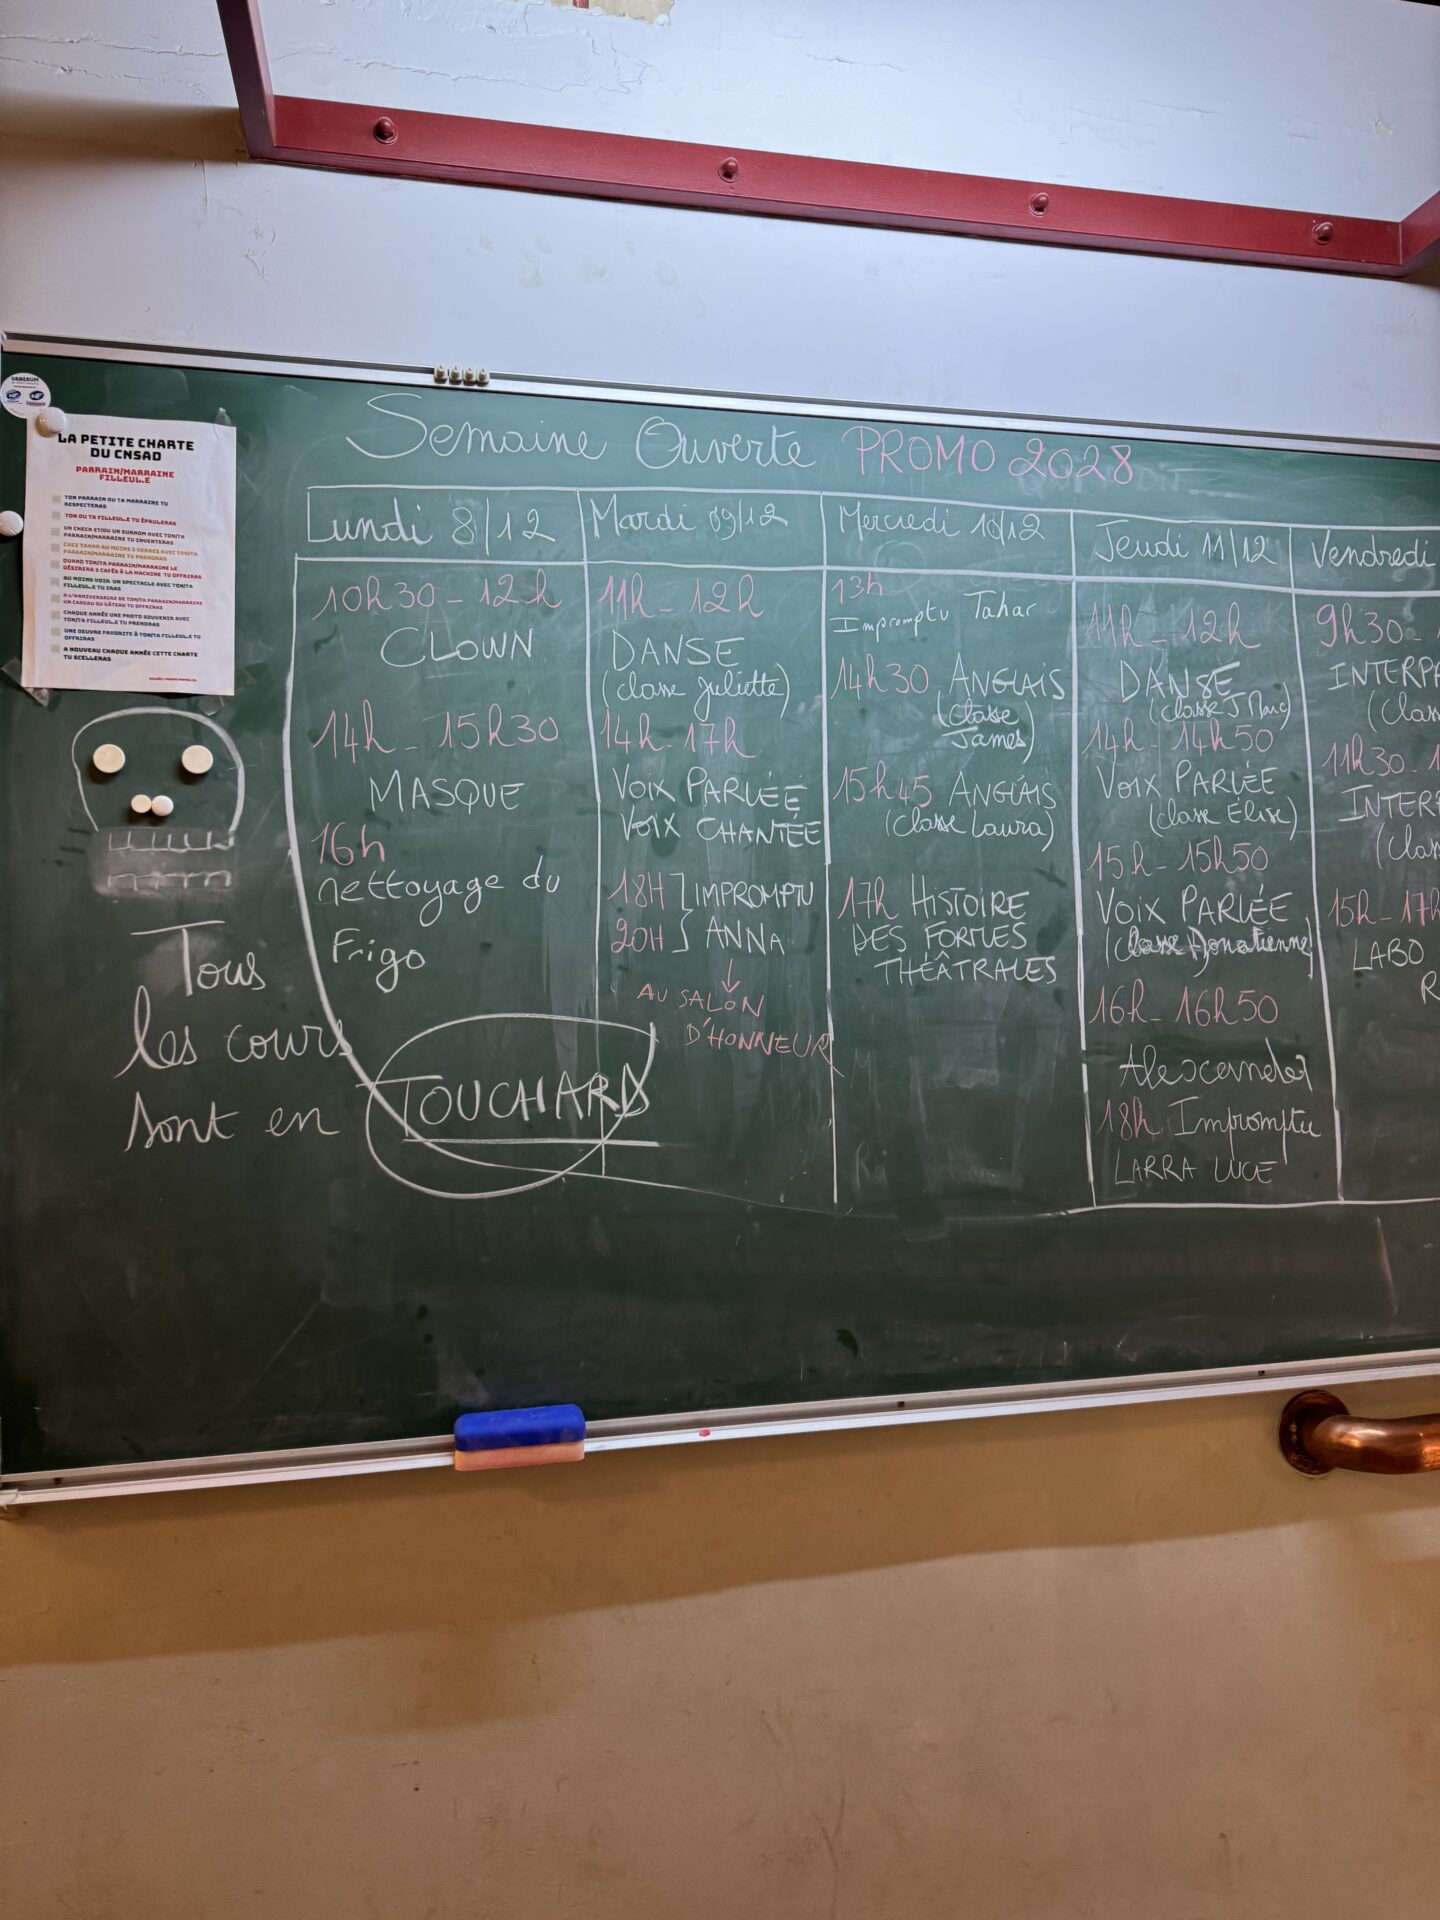 VANERUM
NF
LA PETITE CHARTE
DU CNSAD
PARRAIN/MARRAINE
FILLEUL.E
TON PARRAIN OU TA MARRAINE TU
RESPECTERAS
TON OU TA FILLEUL.E TU ÉPAULERAS
UN CHECK ET/OU UN SURNOM AVEC TON/TA
PARRAIN/MARRAINE TU INVENTERAS
CHEZ TAHAR AU MOINS 3 VERRES AVEC TON/TA
PARRAIN/MARRAINE TU PRENDRAS
QUAND TON/TA PARRAIN/MARRAINE LE
DÉSIRERA 3 CAFÉS À LA MACHINE TU OFFRIRAS
AU MOINS VOIR UN SPECTACLE AVEC TON/TA
FILLEUL.E TU IRAS
A L'ANNIVERSAIRE DE TON/TA PARRAIN/MARRAINE
UN CADEAU OU GÂTEAU TU OFFRIRAS
CHAQUE ANNÉE UNE PHOTO SOUVENIR AVEC
TON/TA FILLEUL.E TU PRENDRAS
UNE OEUVRE FAVORITE À TON/TA FILLEUL.E TU
OFFRIRAS
A NOUVEAU CHAQUE ANNÉE CETTE CHARTE
TU SCELLERAS
Semaine Ouverte PROMO 2028
Lundi 8/12
10h30 - 12h
CLOWN
14h - 15h30
MASQUE
16h
nettoyage du
Frigo
Mardi 09/12
11h - 12h
DANSE
(classe Juliette)
14h - 17h
VOIX PARLÉE
VOIX CHANTÉE
18H IMPROMPTU
20H ANNA
AU SALON
D'HONNEUR
Mercredi 10/12
13h
Impromptu Tahar
14h30 ANGLAIS
(classe
James)
15h45 ANGLAIS
(classe Laura)
17h HISTOIRE
DES FORMES
THÉÂTRALES
Jeudi 11/12
11h - 12h
DANSE
(classe J Marc)
14h - 14h50
VOIX PARLÉE
(classe Élise)
15h - 15h50
VOIX PARLÉE
(classe Donatienne)
16h - 16h50
Alexcander
18h Impromptu
LARRA LUCE
Vendredi
9h30 -
INTERP
(Clas
11h30 - 1
INTERP
(Clas
15h - 17h
LABO
R
Tous
les cours
sont en TOUCHARD